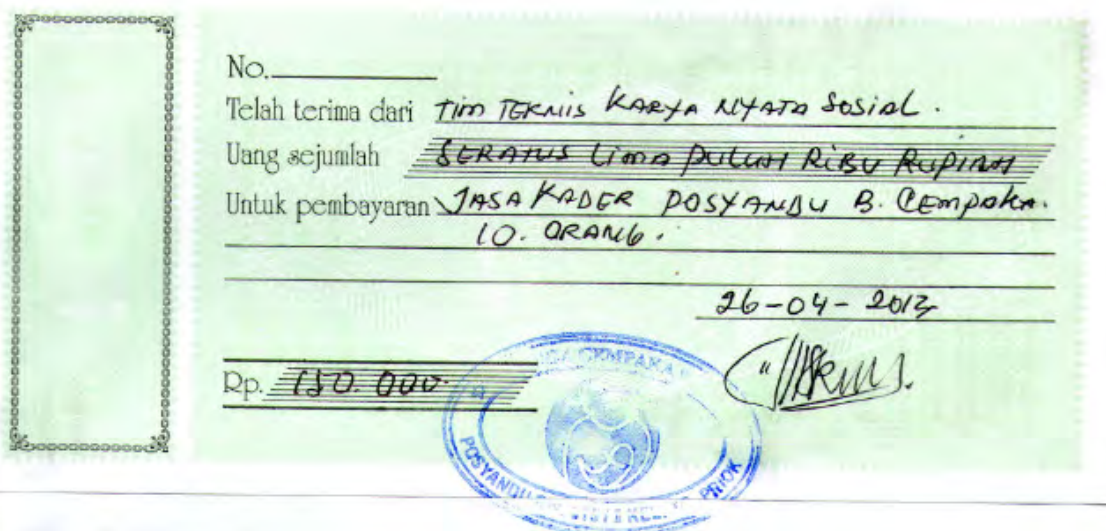 No.
Telah terima dari TIM TEKNIS KARYA NYATA SOSIAL.
Uang sejumlah SERATUS LIMA PULUH RIBU RUPIAH
Untuk pembayaran JASA KADER POSYANDU B. CEMPAKA.
10. ORANG.
26-04-2013
Rp. 150.000.
CEMPAKA
POSYANDU